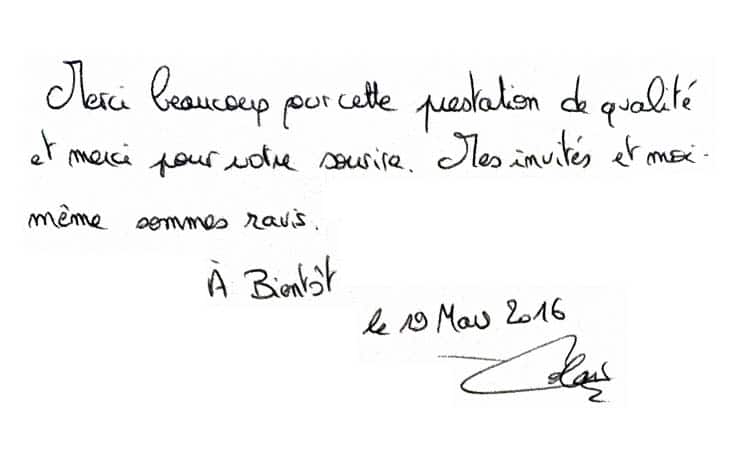 Merci beaucoup pour cette prestation de qualité
et merci pour votre sourire. Mes invités et moi-
même sommes ravis.
À Bientôt
le 19 Mars 2016